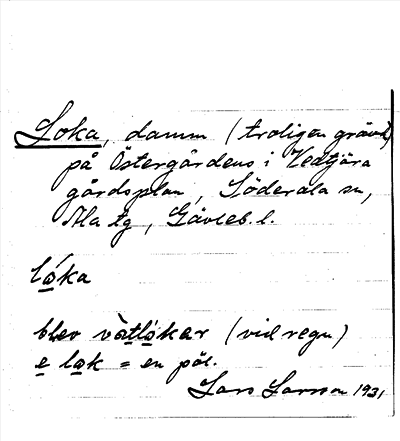 Loka, damm (troligen grävd)
på Östergårdens i Vedtjära
gårdsplan, Söderala sn,
Ala tg, Gävleb. l.
lo̲ka
blev vàtlo̲kar (vid regn)
e̲ lo̲k = en pöl.
Lars Larsson 1931